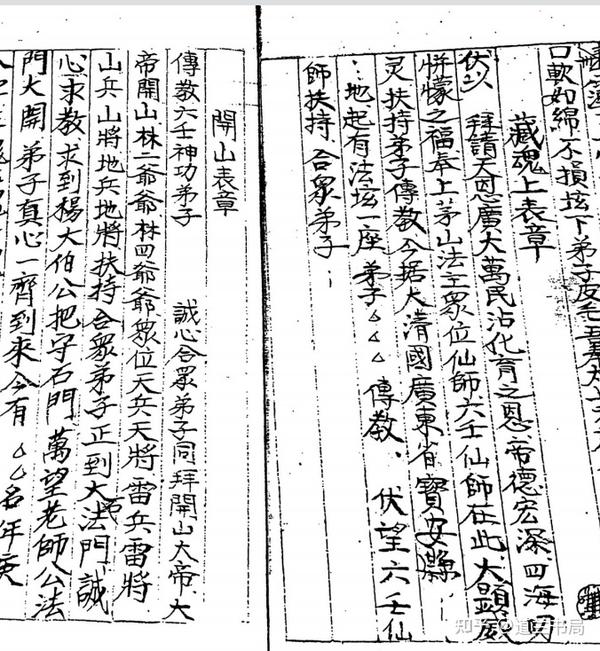 口軟如綿不損坛下弟子皮毛吾奉
藏魂上表章
伏以 拜請天恩廣大萬民沾化育之恩帝德宏深四海
帡幪之福奉上茅山法主眾位仙師六壬仙師在此大顕威
灵扶持弟子傳教今据大清國廣東省寶安縣…
…地起有法坛一座 弟子△△△傳教、 伏望六壬仙
師扶持合眾弟子…
開山表章
傳教六壬神功弟子 誠心合眾弟子同拜開山大帝大
帝開山林二爺爺林四爺爺眾位天兵天將雷兵雷將
山兵山將地兵地將扶持合眾弟子正到大法門誠
心求教求到楊大伯公把守石門萬望老師公法
門大開弟子真心一齊到來今有△△名年庚
知乎